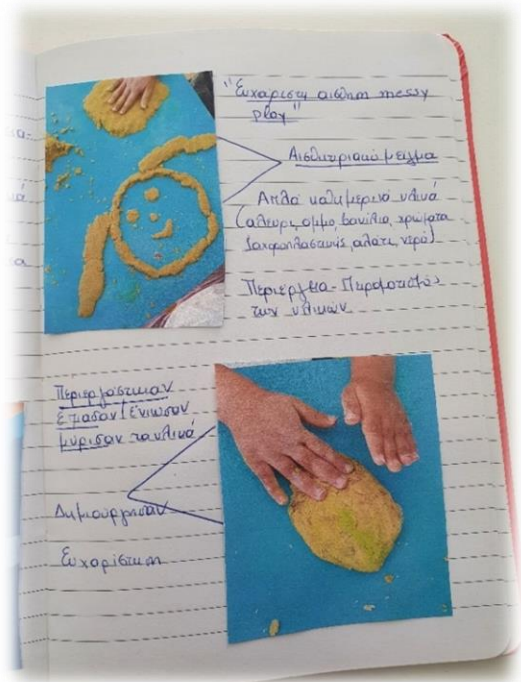 "Ευχάριστη αίσθηση messy
play"
Αισθητηριακό μείγμα
Απλά καθημερινά υλικά
(αλεύρι, άμμο, βανίλια, χρώματα
ζαχαροπλαστικής, αλάτι, νερό)
Περιέργεια - Πειραματισμός
των υλικών
Περιεργάστηκαν
έπιασαν/ένιωσαν
μύρισαν τα υλικά
Δημιούργησαν
Ευχαρίστηση